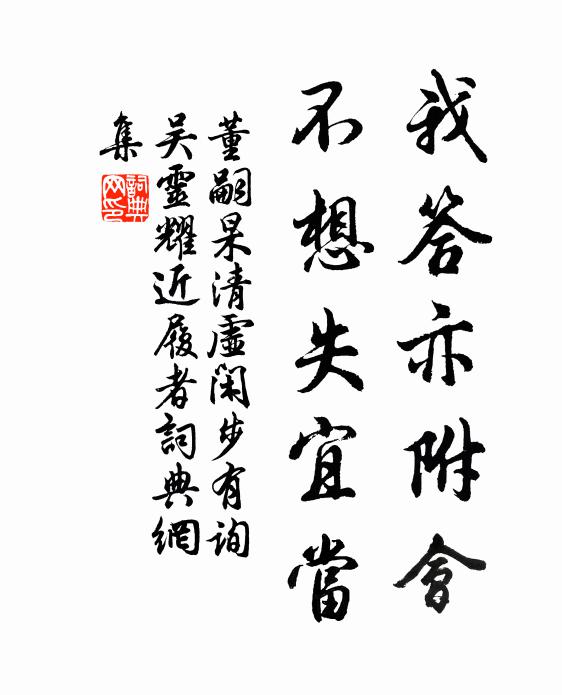 我答亦附會
不想失宜當
董嗣杲清虛閑步有詢
吴靈耀近履者詞典網
集
詞典
网印